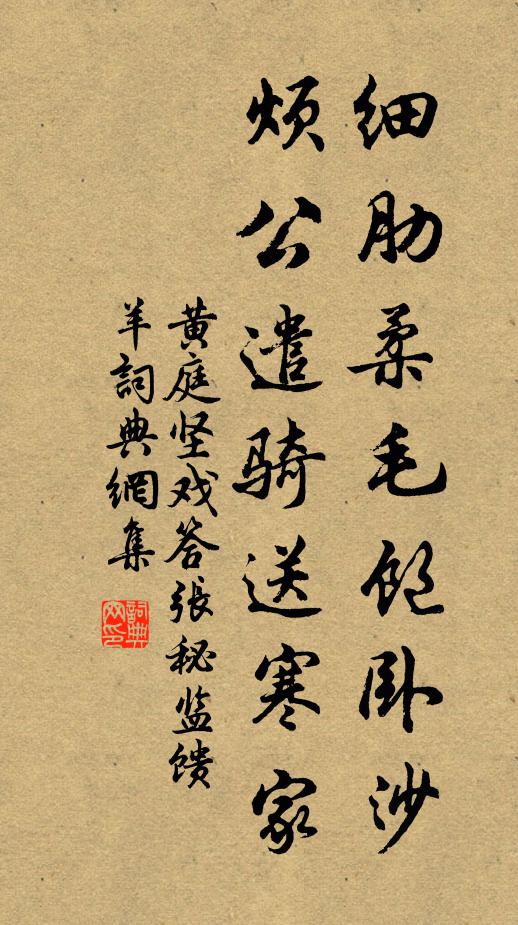 细肋柔毛饱卧沙
烦公遣骑送寒家
黄庭坚戏答张秘监馈
羊詞典網集
詞典网印